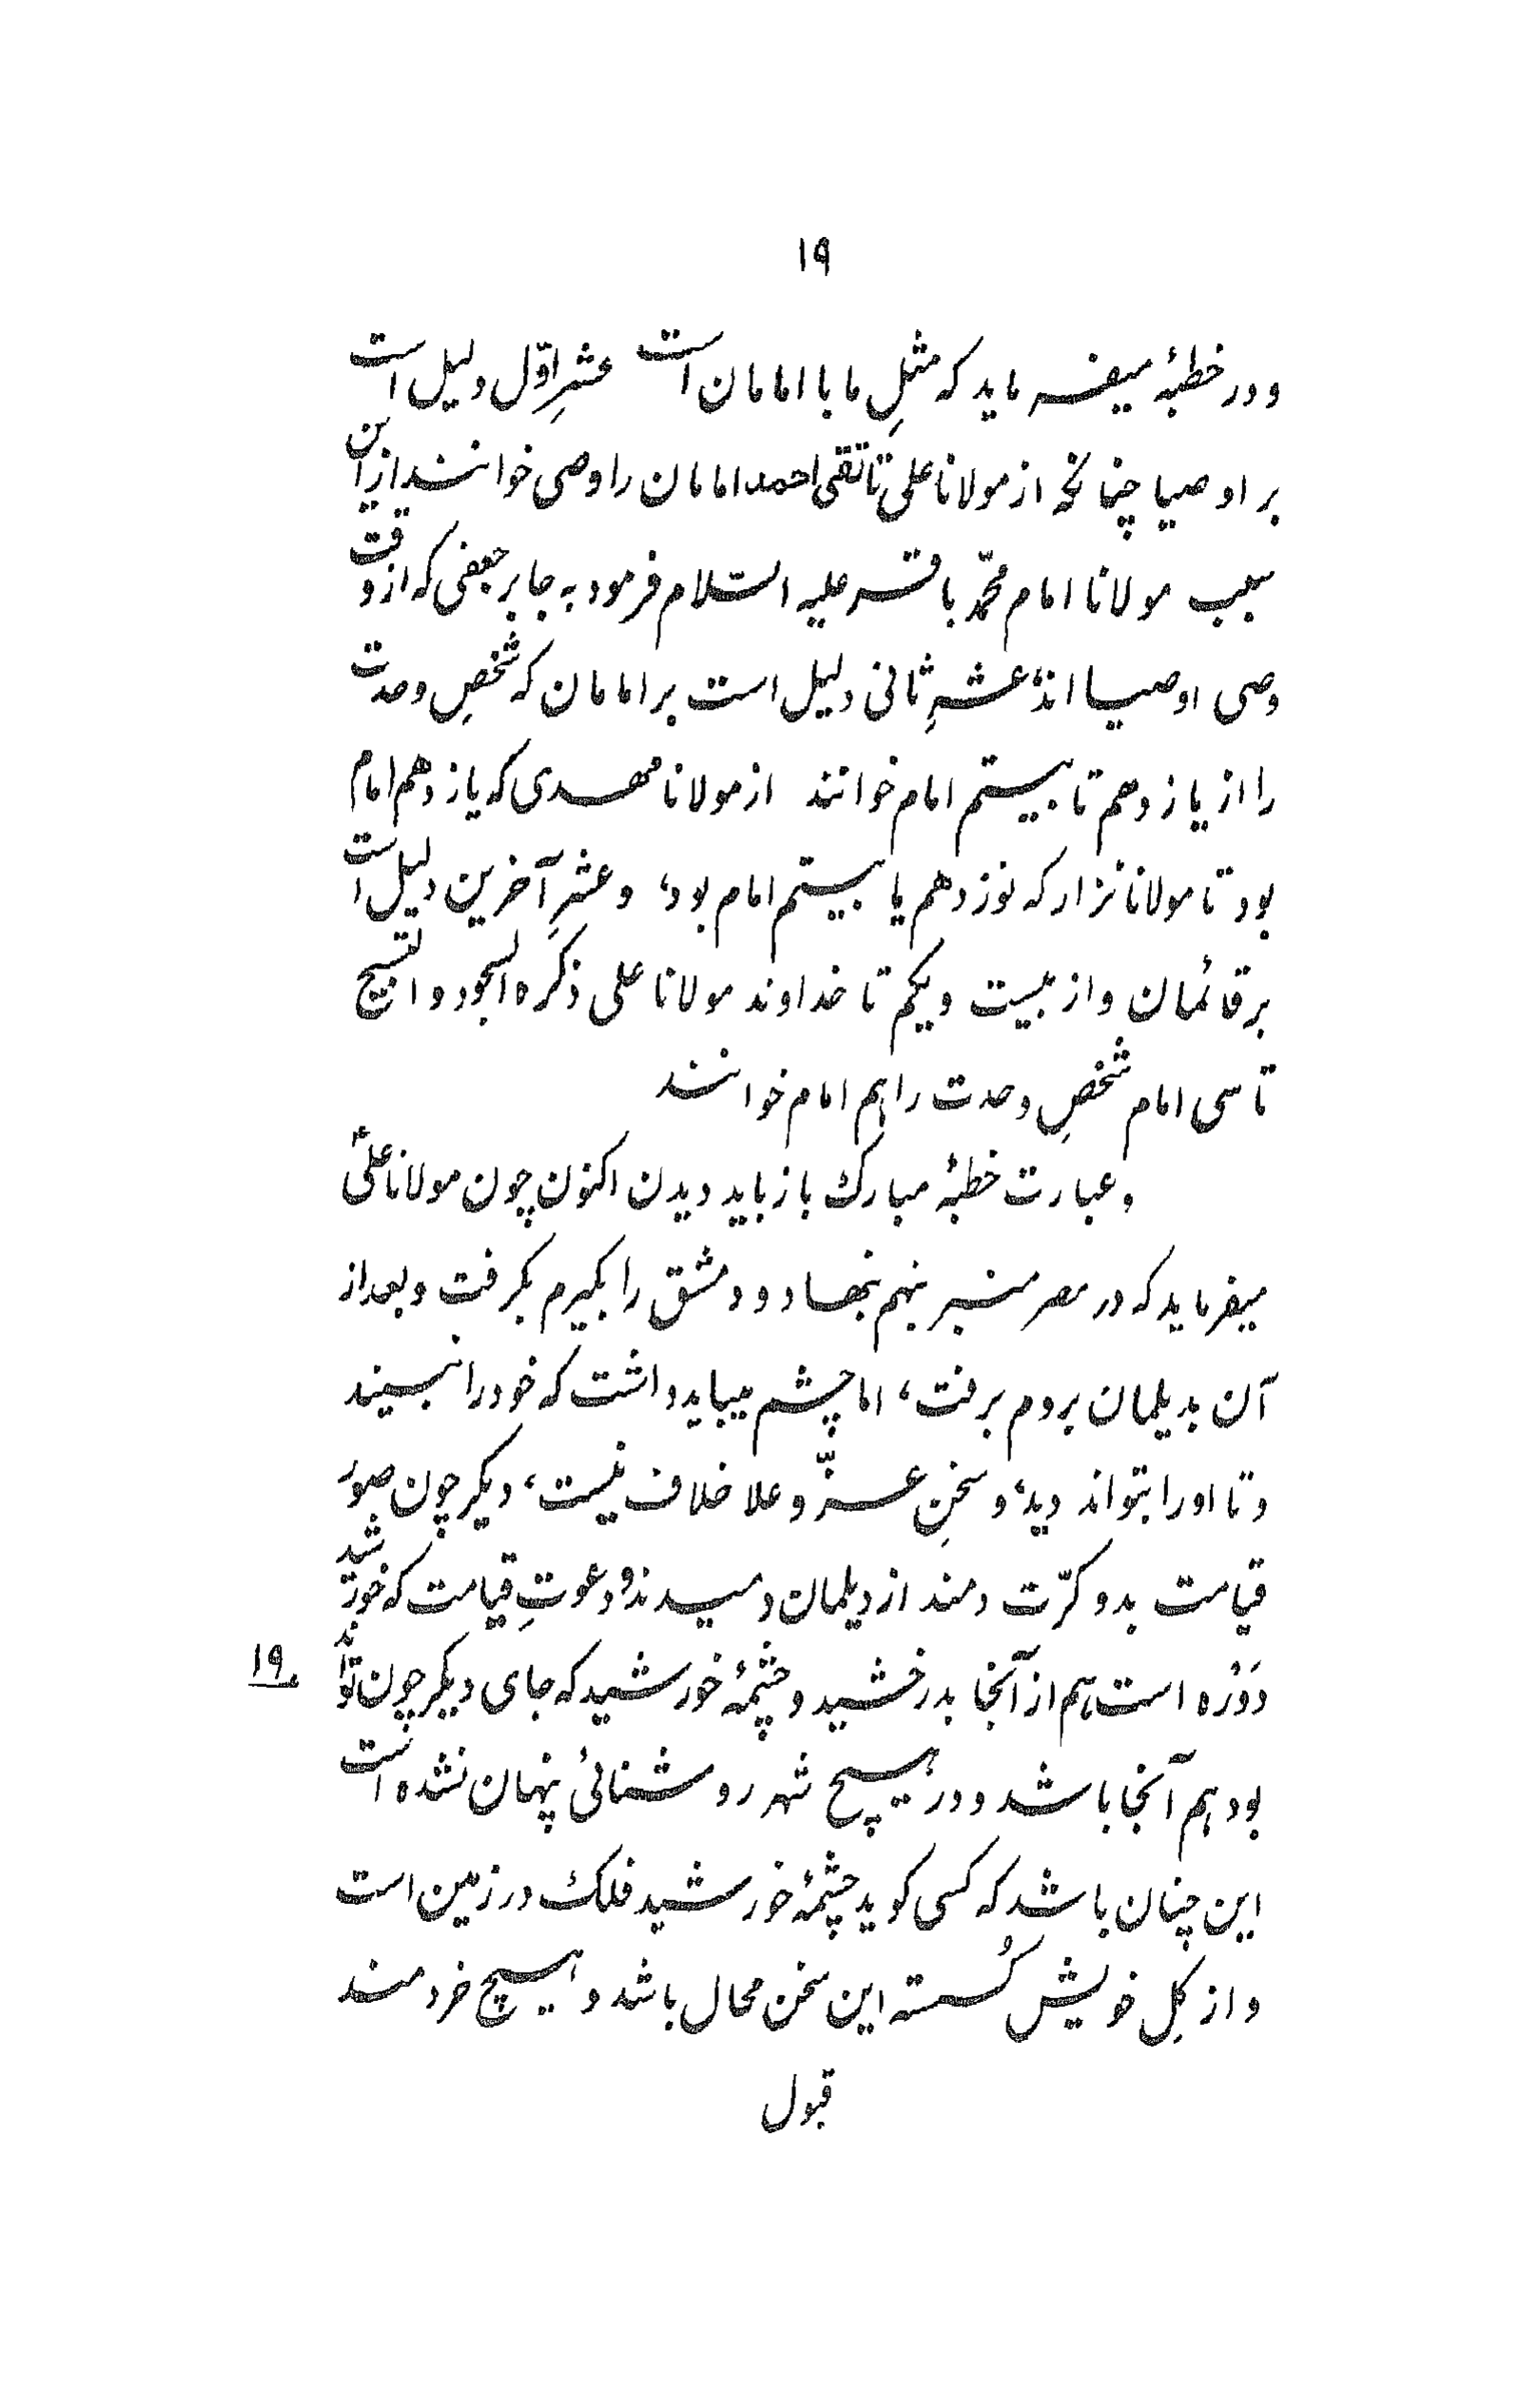 ۱۹
و در خطبهٔ میفرماید که مثلِ ما با امامان است عشرِ اوّل دلیل است
بر اوصیا چنانکه از مولانا علی تا تقی احمد امامان را وصی خوانند از این
سبب مولانا امام محمّد باقر علیه السّلام فرمود به جابر جعفی که از وقت
وصی اوصیا اند، عشرِ ثانی دلیل است بر امامان که شخصِ وحدت
را از یازدهم تا بیستم امام خوانند از مولانا مهدی که یازدهم امام
بود تا مولانا نزار که نوزدهم یا بیستم امام بود، و عشرِ آخرین دلیل است
بر قائمان و از بیست و یکم تا خداوند مولانا علی ذکره السجود و التسبیح
تا سی امام شخصِ وحدت را هم امام خوانند
و عبارت خطبهٔ مبارک باز باید دیدن اکنون چون مولانا علیؑ
میفرماید که در مصر منبر بنهم بنهاد و دمشق را بکیرم بکرفت و بعد از
آن بدیلمان بروم برفت، اما چشم میباید داشت که خود را نبیند
و تا او را بتواند دید، و سخنِ عزّ و علا خلاف نیست، دیکر چون صور
قیامت بدو کرّت دمند از دیلمان دمیدند و دعوتِ قیامت که خورشید
دَوْره است هم از آنجا بدرخشید و چشمهٔ خورشید که جای دیکر چون تواند
۱۹
بود هم آنجا باشد و در هیچ شهر روشنائی پنهان نشده است
این چنان باشد که کسی کوید چشمهٔ خورشید فلک در زمین است
و از کِل خویش کُسسته این سخن محال باشد و هیچ خردمند
قبول